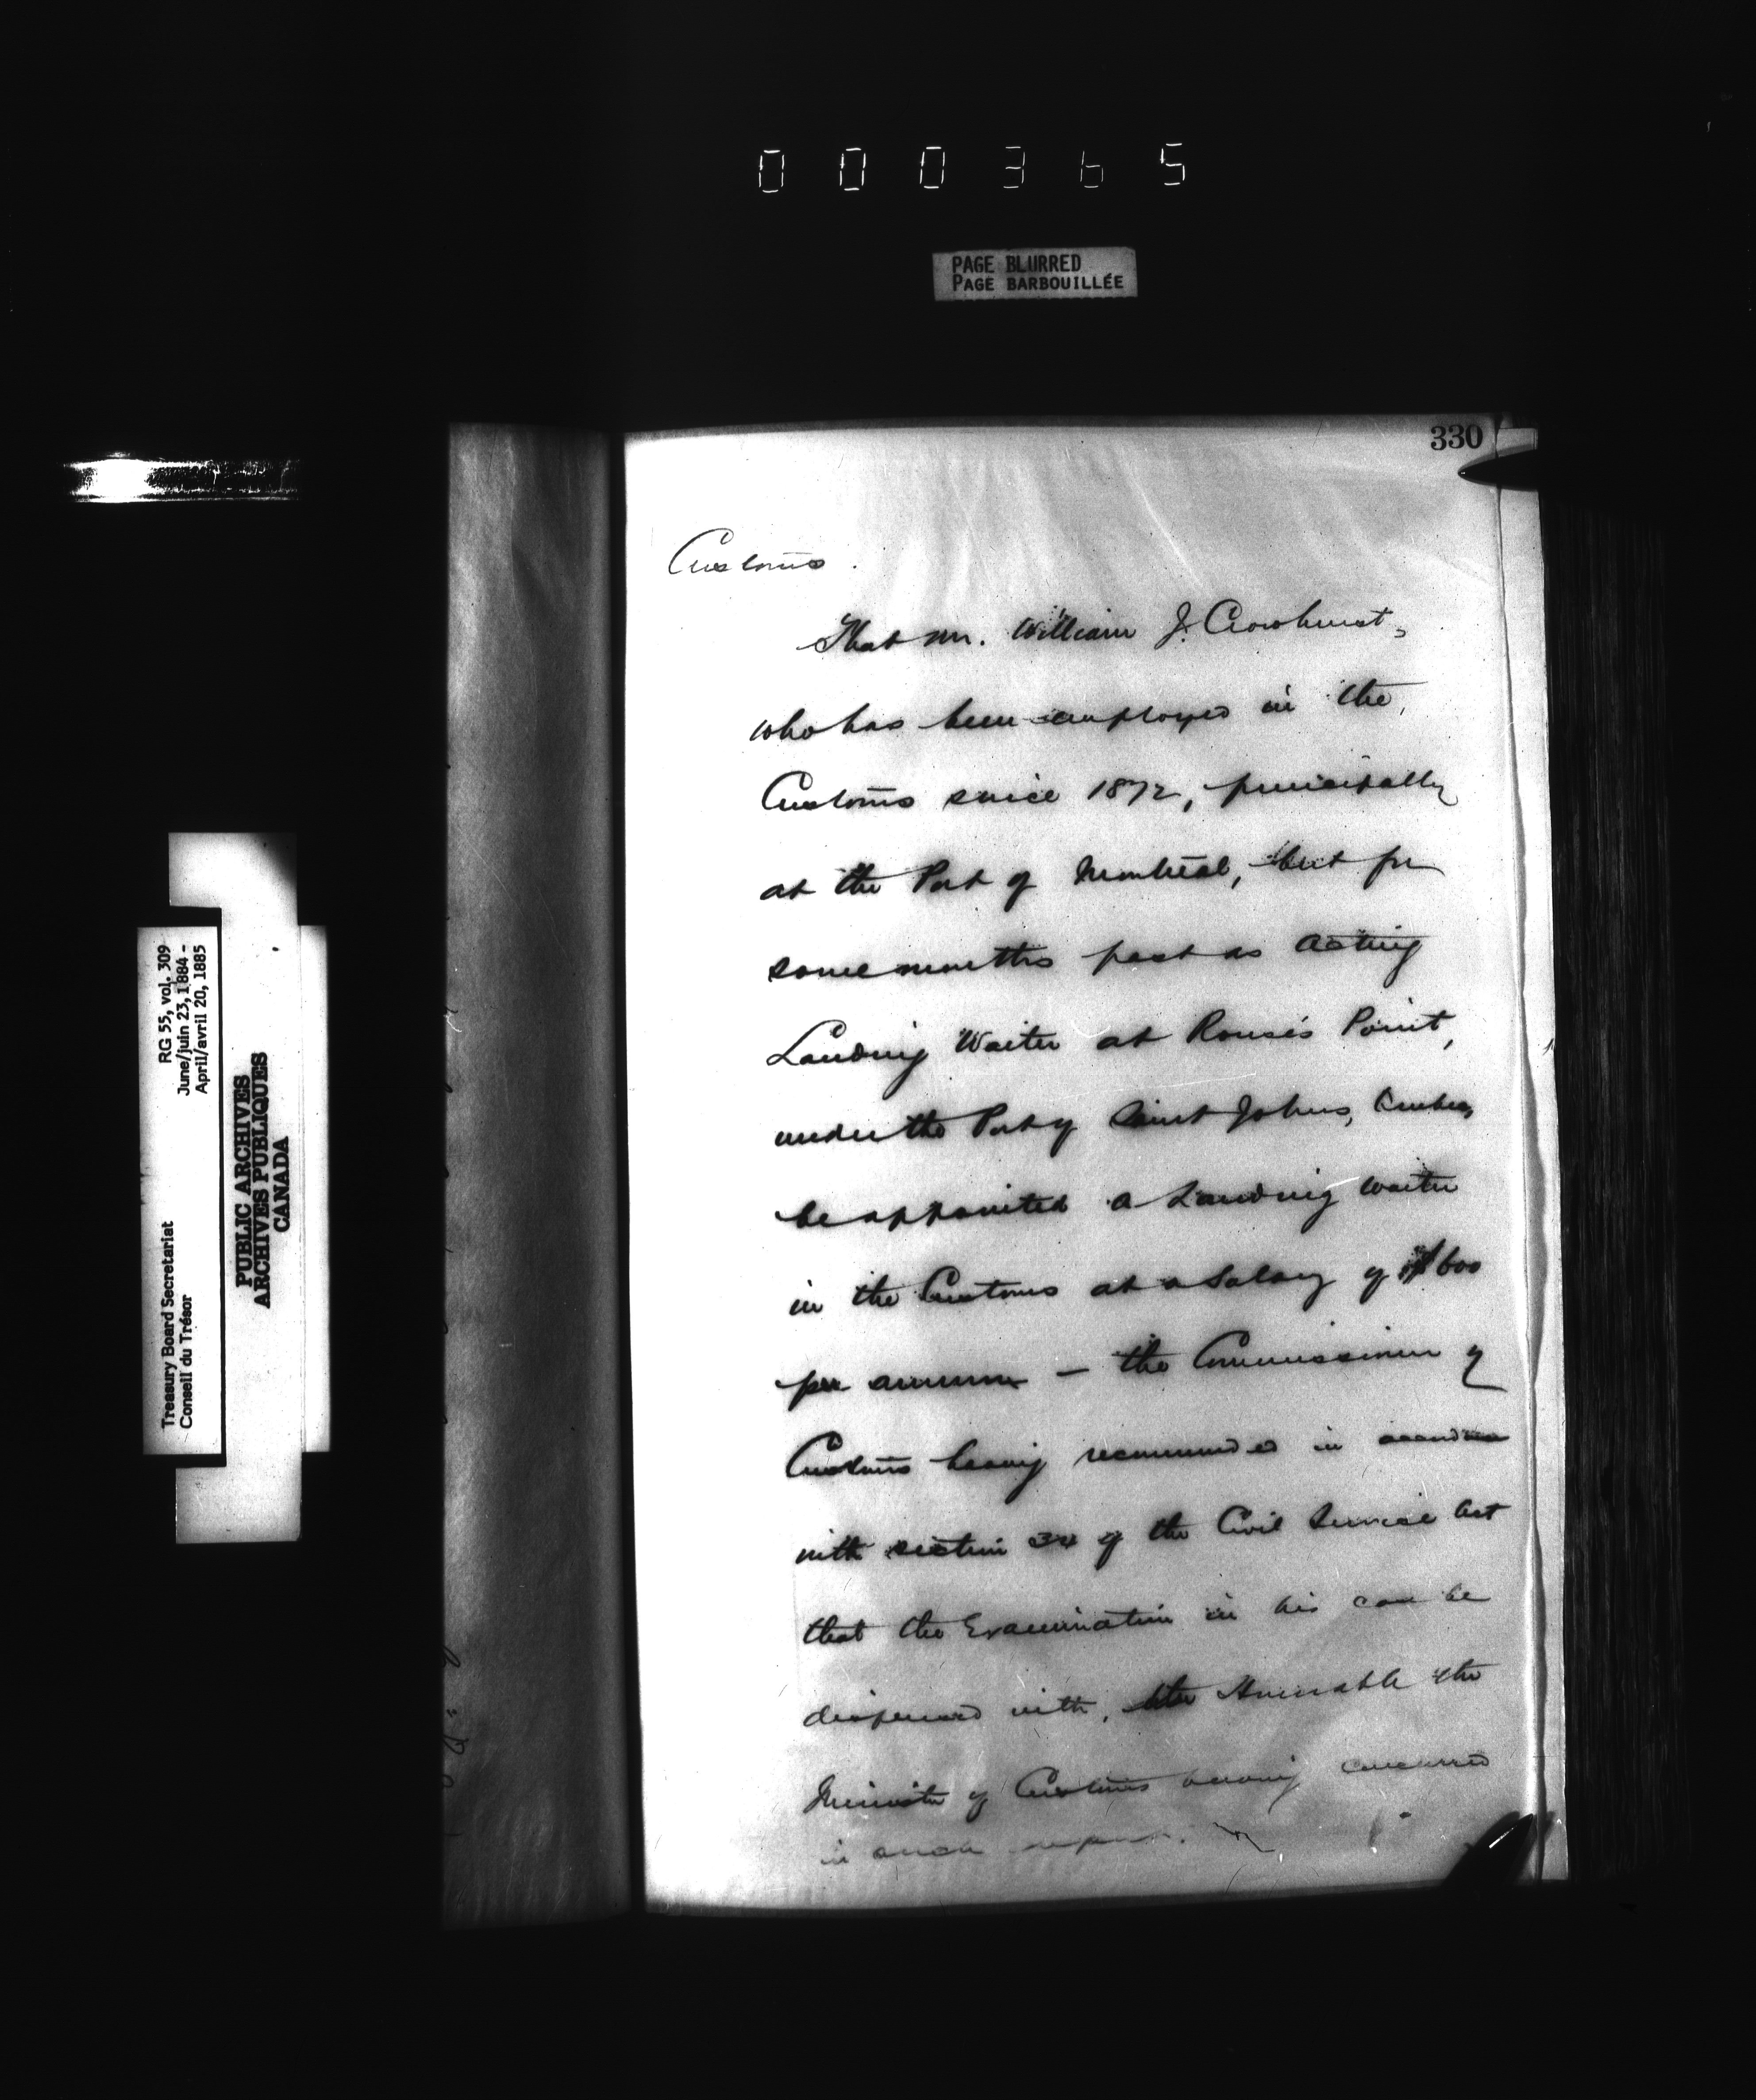 000365
PAGE BLURRED
PAGE BARBOUILLÉE
330
Customs.
That Mr. William J. Crowhurst,
who has been employed in the
Customs since 1872, principally
at the Port of Montreal, but for
some months past as Acting
Landing Waiter at Rouse's Point,
under the Port of Saint Johns, Quebec,
be appointed a Landing Waiter
in the Customs at a Salary of $600
per annum — the Commissioner of
Customs having recommended in accordance
with section of the Civil Service Act
that the Examination in his case be
dispensed with, the Honorable the
Minister of Customs having concurred
in such
RG 55, vol. 309
June/juin 23, 1884 -
April/avril 20, 1885
Treasury Board Secretariat
Conseil du Trésor
PUBLIC ARCHIVES
ARCHIVES PUBLIQUES
CANADA